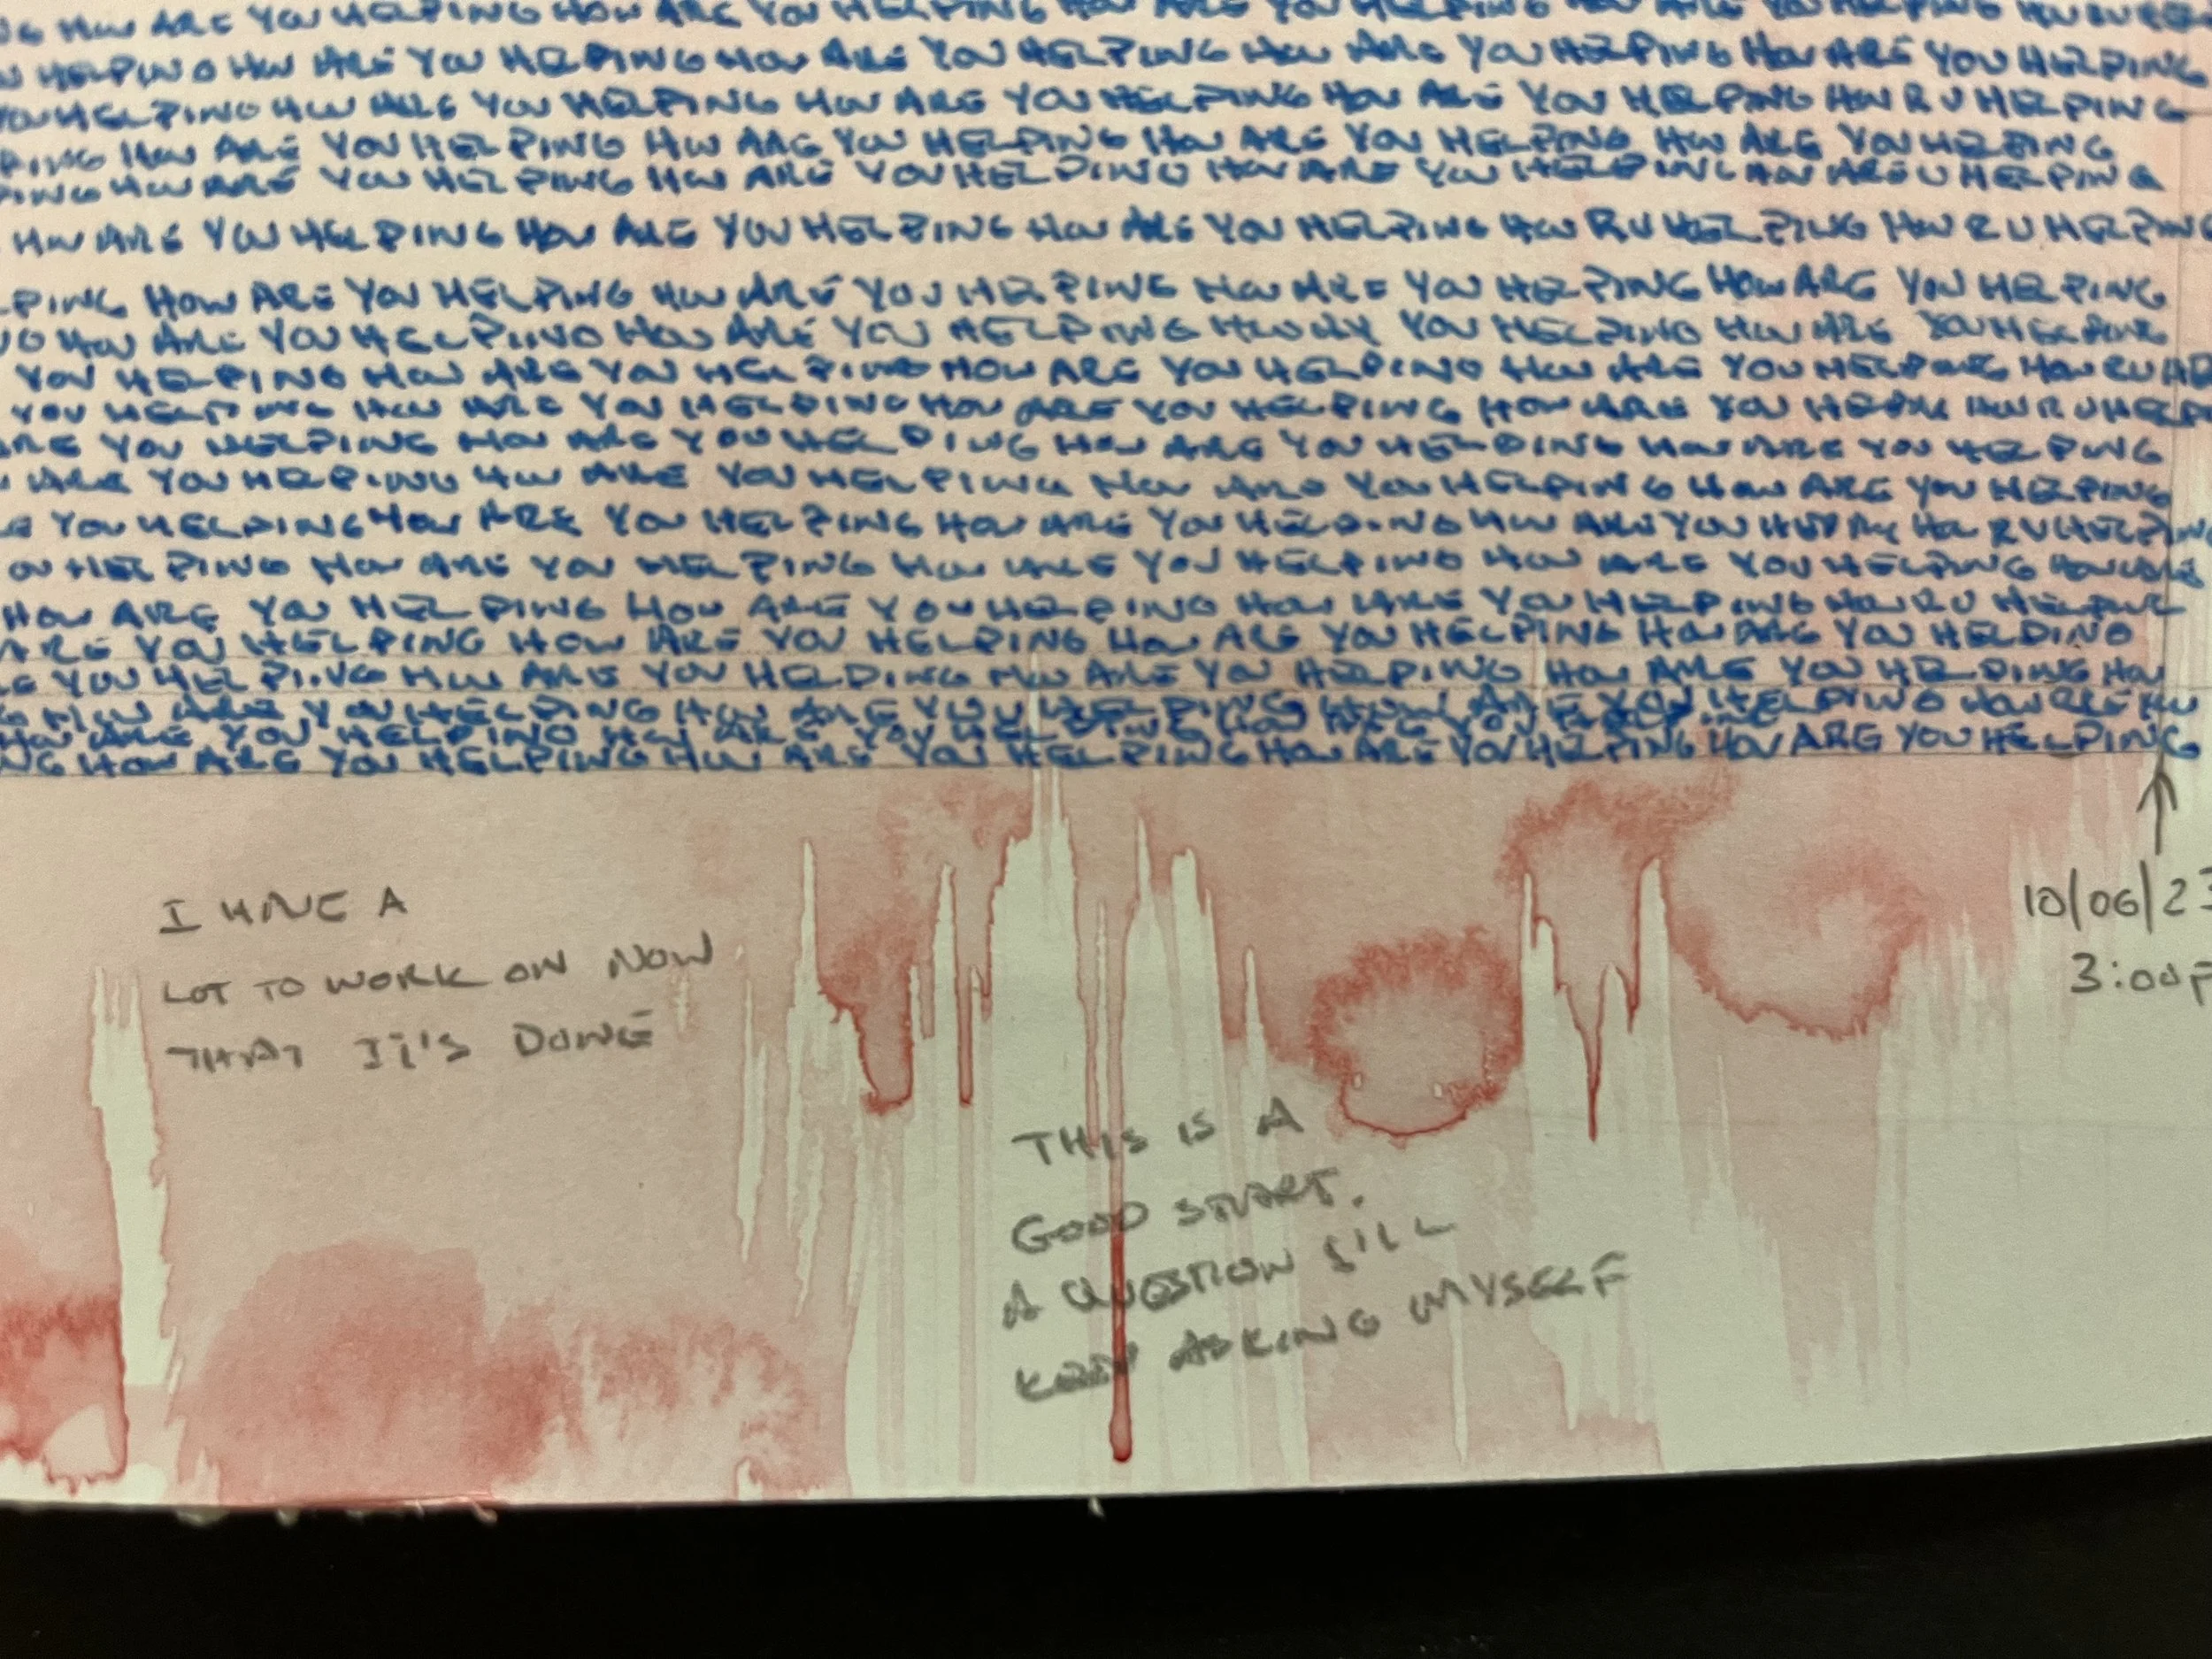 NG HOW ARE YOU HELPING HOW ARE YOU HELPING HOW ARE YOU HELPING HOW ARE YOU HELPING
HELPING HOW ARE YOU HELPING HOW ARE YOU HELPING HOW ARE YOU HELPING HOW ARE YOU HELPING
YOU HELPING HOW ARE YOU HELPING HOW ARE YOU HELPING HOW ARE YOU HELPING HOW R U HELPING
PING HOW ARE YOU HELPING HOW ARE YOU HELPING HOW ARE YOU HELPING HOW ARE YOU HELPING
PING HOW ARE YOU HELPING HOW ARE YOU HELPING HOW ARE YOU HELPING HOW ARE U HELPING
HOW ARE YOU HELPING HOW ARE YOU HELPING HOW ARE YOU HELPING HOW R U HELPING HOW R U HELPING
LPING HOW ARE YOU HELPING HOW ARE YOU HELPING HOW ARE YOU HELPING HOW ARE YOU HELPING
HOW ARE YOU HELPING HOW ARE YOU HELPING YOU HELPING HOW ARE YOU HELPING
YOU HELPING HOW ARE YOU HELPING HOW ARE YOU HELPING HOW ARE YOU HELPING HOW R U HE
YOU HELPING HOW ARE YOU HELPING HOW ARE YOU HELPING HOW ARE YOU HOW R U HELP
ARE YOU HELPING HOW ARE YOU HELPING HOW ARE YOU HELPING HOW ARE YOU HELPING
ARE YOU HELPING HOW ARE YOU HELPING HOW ARE YOU HELPING HOW ARE YOU HELPING
E YOU HELPING HOW ARE YOU HELPING HOW ARE YOU HELPING HOW ARE YOU HOW R U HELPING
OU HELPING HOW ARE YOU HELPING HOW ARE YOU HELPING HOW ARE YOU HELPING
HOW ARE YOU HELPING HOW ARE YOU HELPING HOW ARE YOU HELPING HOW R U HELPING
ARE YOU HELPING HOW ARE YOU HELPING HOW ARE YOU HELPING HOW ARE YOU HELPING
E YOU HELPING HOW ARE YOU HELPING HOW ARE YOU HELPING HOW ARE YOU HELPING HOW
HOW ARE YOU HELPING HOW ARE YOU HELPING HOW ARE YOU HELPING HOW
HOW ARE YOU HELPING HOW ARE YOU HELPING HOW ARE YOU HELPING
NG HOW ARE YOU HELPING HOW ARE YOU HELPING HOW ARE YOU HELPING HOW ARE YOU HELPING
I HAVE A
LOT TO WORK ON NOW
THAT IT'S DONE
THIS IS A
GOOD START.
A QUESTION I'LL
KEEP ASKING MYSELF
10/06/23
3:00P